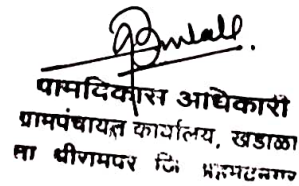 ग्रामविकास अधिकारी
ग्रामपंचायत कार्यालय, खडाळा
ता श्रीरामपूर जि अहमदनगर